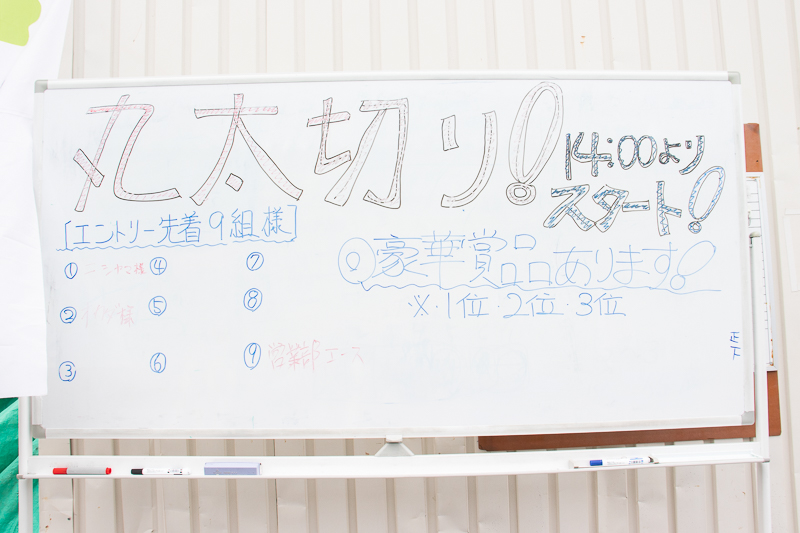 丸太切り!
14:00より
スタート!
[エントリー先着9組様]
◎豪華賞品あります!
※・1位・2位・3位
① 様
② 様
③
④
⑤
⑥
⑦
⑧
⑨ 営業部エース